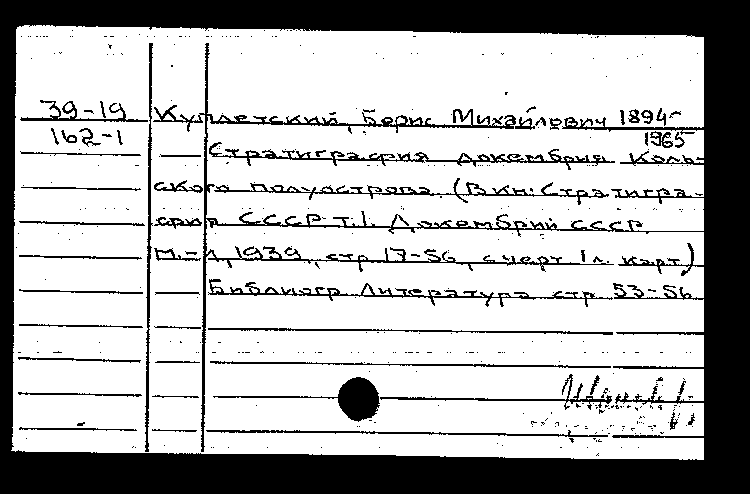 39-19 Куплетский, Борис Михайлович, 1894-
162-1 1965
Стратиграфия докембрия Коль-
ского полуострова. (В кн: Стратигра-
фия СССР. т.1. Докембрий СССР.
М.-Л, 1939, стр 17-56, с черт 1 л. карт)
Библиогр Литература стр 53-56